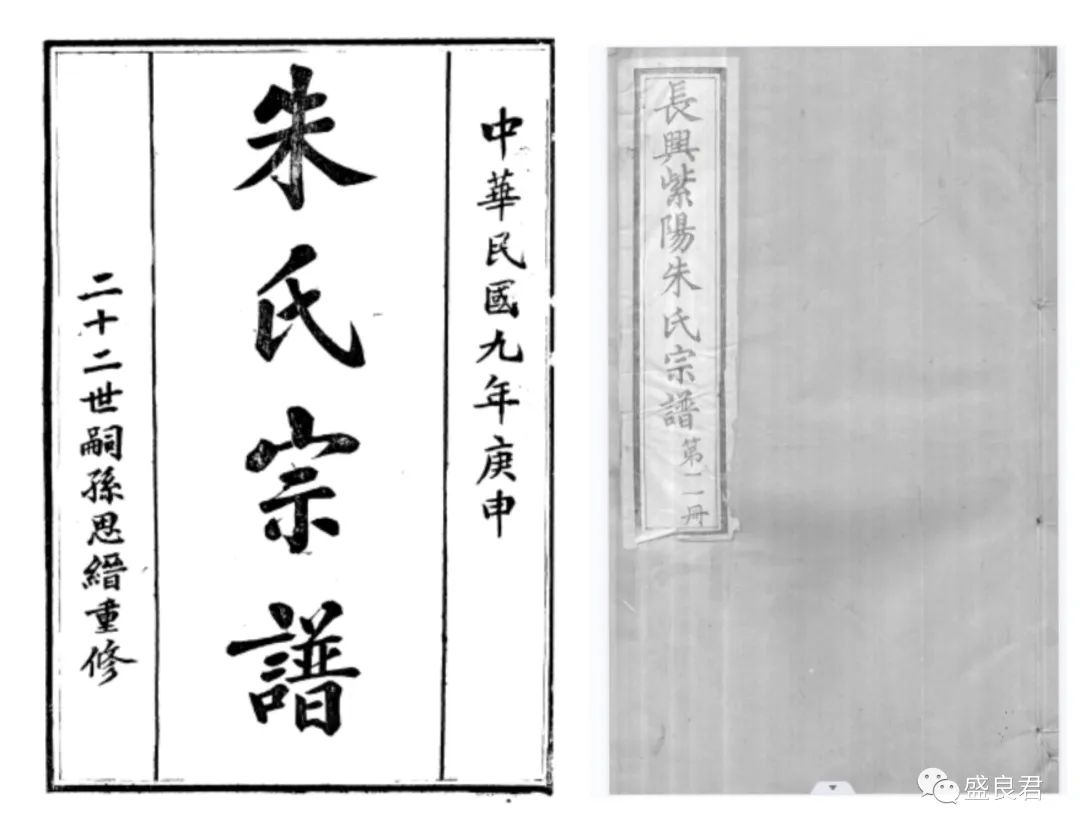 中華民國九年庚申
朱氏宗譜
二十二世嗣孫思縉重修
長興紫陽朱氏宗譜 第二冊
盛良君